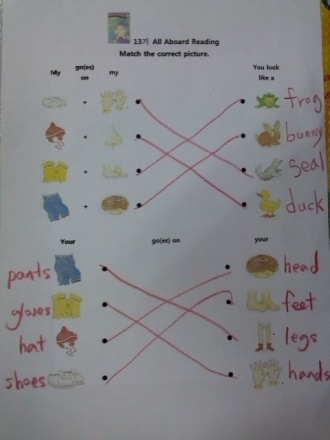 13기 All Aboard Reading
Match the correct picture.
My go(es) on my You look like a
frog
bunny
seal
duck
Your go(es) on your
pants head
gloves feet
hat legs
shoes hands